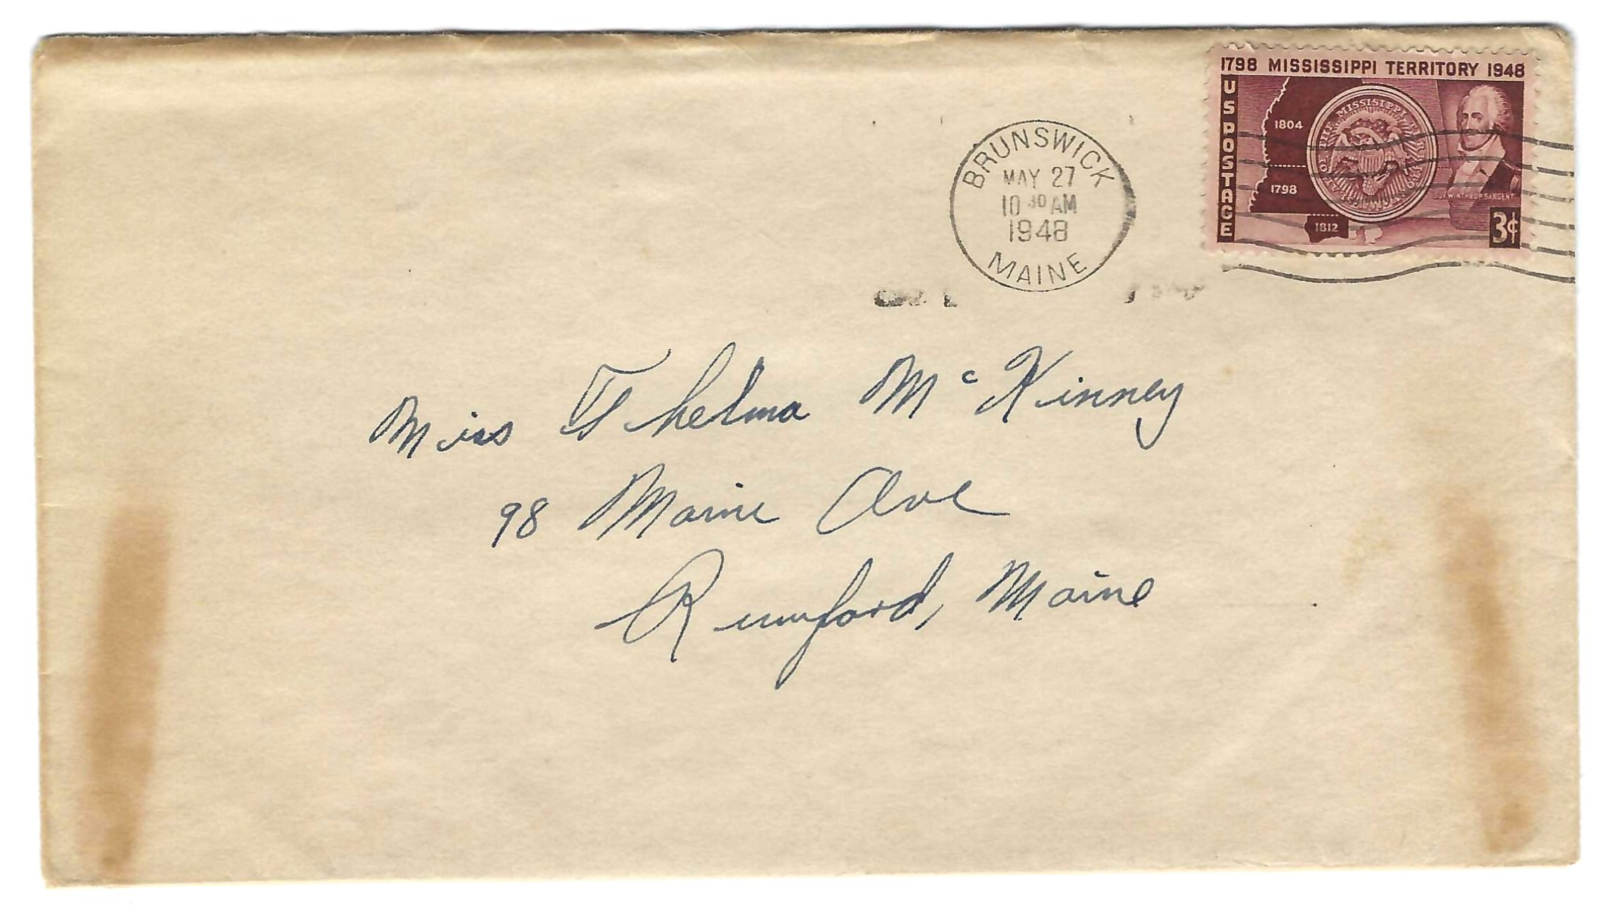 1798 MISSISSIPPI TERRITORY 1948
US POSTAGE
1804
1798
1812
GOV. WINTHROP SARGENT
3¢
BRUNSWICK
MAY 27
10 30 AM
1948
MAINE
Miss Thelma McKinney
98 Maine Ave
Rumford, Maine